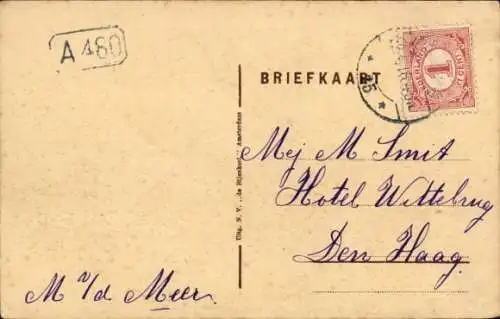 A 480
BRIEFKAART
NEDERLAND
1
CENT
Mej M Smit
Hotel Wittebrug
Den Haag
M v/d Meer.
Uitg. N. V. „de Rijnkust” Amsterdam